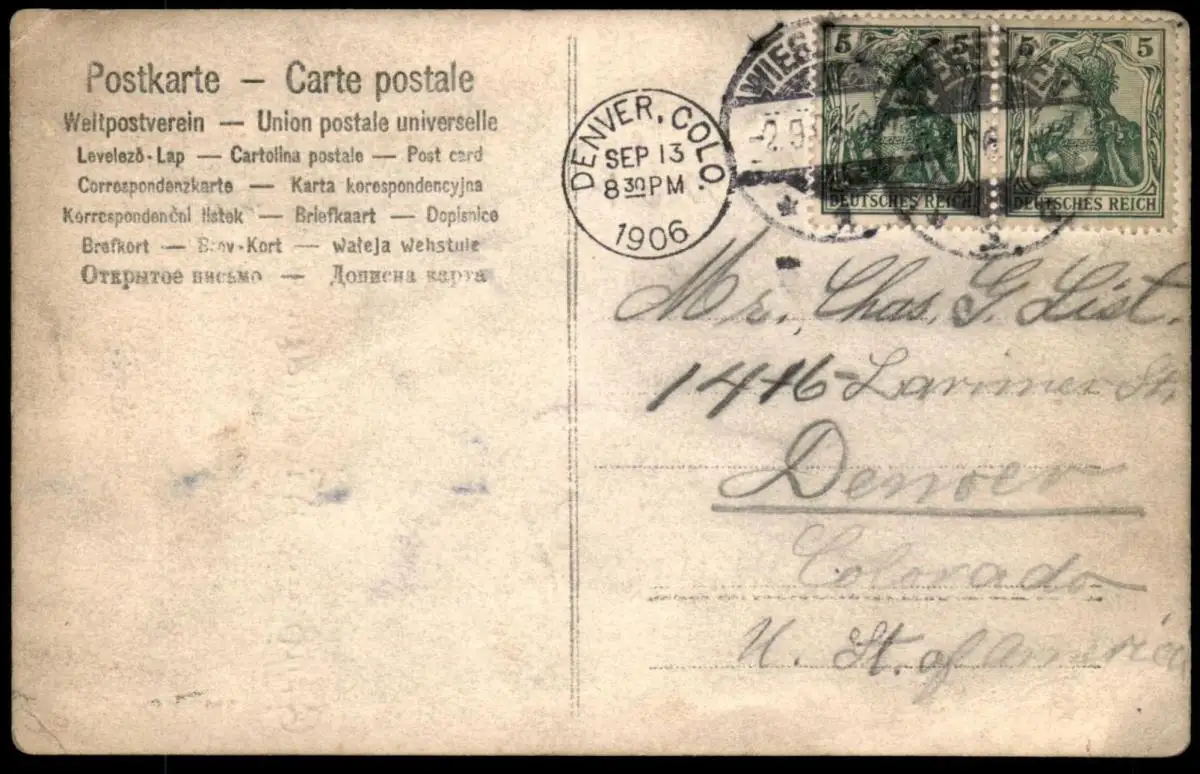 Postkarte — Carte postale
Weltpostverein — Union postale universelle
Levelező-Lap — Cartolina postale — Post card
Correspondenzkarte — Karta korespondencyjna
Korrespondenční lístek — Briefkaart — Dopisnice
Brefkort — Brev-Kort — wałeja wehstule
Открытое письмо — Дописна карта
DENVER, COLO.
SEP 13
8 30 PM
1906
WIESBADEN
5 5 5 5
DEUTSCHES REICH DEUTSCHES REICH
Mr. Chas. G. List.
1416 Larimer St.
Denver
Colorado
U. St. of America